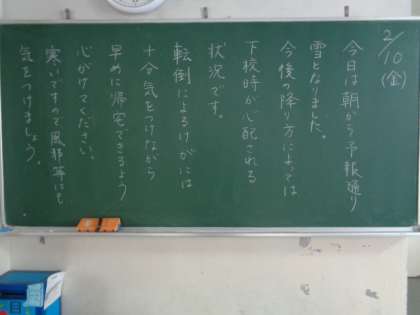 2/10(金)
今日は朝から予報通り
雪となりました。
今後の降り方によっては
下校時が心配される
状況です。
転倒によるけがには
十分気をつけながら
早めに帰宅できるよう
心がけてください。
寒いですので風邪等にも
気をつけましょう。